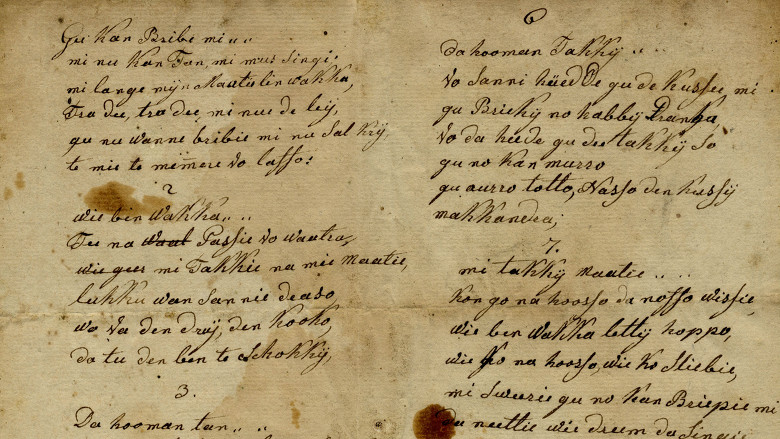 Gu kan Bribe mi,,
mi nu kan Tan, mi mus singi:
mi lange mijn Maatie bin wakka,
Tra dee, tra dee, mi nu de leij,
gu nu wanne bribie mi nu sal krij
te mie te mimere vo lasso:
2
wie bin wakka,,
Tee na Passie vo waatra,
wie gees mi Takkie na mie Maatie,
lukku wan sannie deaso
wo va den druij, den kooko,
da tu den ben te Schokkij,
3.
Da hooman tan,,
6
da hooman Takkij,,
vo sanni heede gu de kussie mi
gu Briekij no habbij Pranga
vo da heede gu dee takkij so
gu no kan murro
gu aurro totto, Nasso den kussij
makkandra;
7.
mi takkij Maatie,,
kon go na hoosso da nosso wissie,
wie ben wakka lettij hoppo,
wie ko na hoosso, wie ko sliebie,
mi sweerie gu no kan Briepie mi
da neettie wie dreem da singie